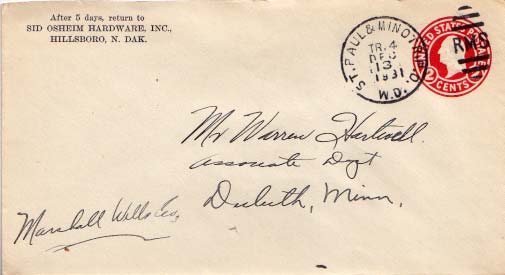 After 5 days, return to
SID OSHEIM HARDWARE, INC.,
HILLSBORO, N. DAK.
ST. PAUL & MINOT
TR. 4
DEC
13
1931
W.D.
R.P.O.
RMS
UNITED STATES POSTAGE
2 CENTS 2
Mr Warren Hartwell.
Associate Dept
Duluth, Minn.
Marshall Wells Co,